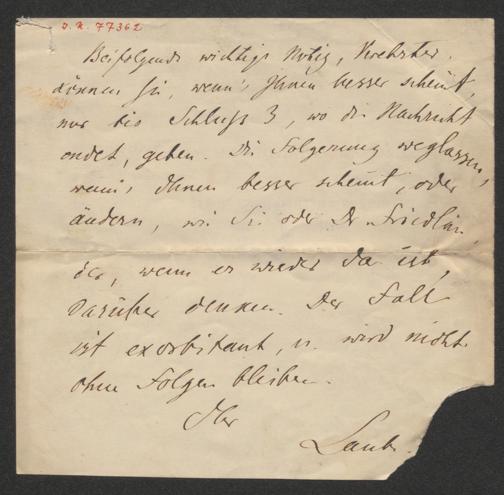 J. N. 77362
Beifolgende wichtige Notiz, Verehrter,
können Sie, wenn's Ihnen besser scheint,
nur bis Schluß 3, wo die Nachricht
endet, geben. Die Folgerung weglassen,
wenn's Ihnen besser scheint, oder
ändern, wie Sie oder Dr Friedlän
der, wenn er wieder da ist,
darüber denken. Der Fall
ist exorbitant, u. wird nicht
ohne Folgen bleiben.
Ihr
Laube